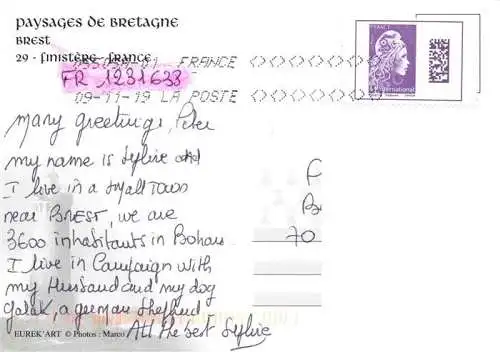 PAYSAGES DE BRETAGNE
BREST
29 - FINISTÈRE - FRANCE
FRANCE
FR 1231633
09-11-19 LA POSTE
FRANCE
International
Many greetings, Peter
my name is Sylvie and
I live in a small Town
near BREST, we are
3600 inhabitants in Bohars
I live in Campaign with
my Husband and my dog
galak, a german Shefherd
All the best Sylvie
70
EUREK'ART © Photos : Marco